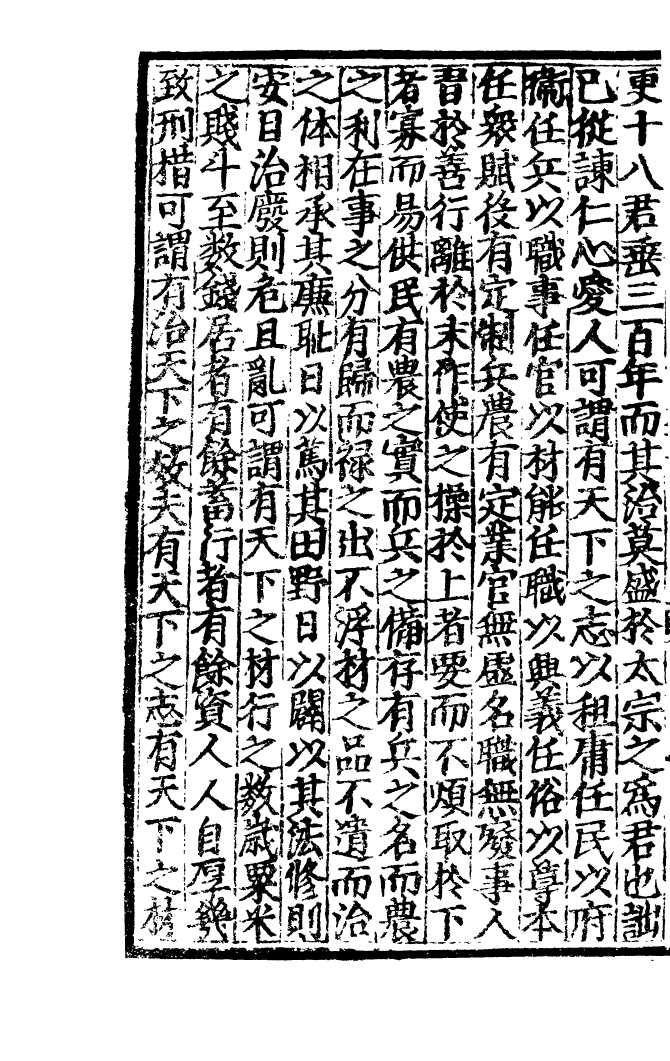 更十八君垂三百年而其治莫盛於太宗之爲君也詘
已從諫仁心愛人可謂有天下之志以租庸任民以府
衛任兵以職事任官以材能任職以興義任俗以學本
任衆賦役有定制兵農有定業官無虛名職無廢事人
習於善行離於末作使之操於上者要而不煩取於下
者寡而易供民有農之實而兵之備存有兵之名而農
之利在事之分有歸而禄之出不浮材之品不遺而治
之体相承其廉耻日以篤其田野日以闢以其法修則
安且治廢則危且亂可謂有天下之材行之數歳粟米
之賤斗至数錢居者有餘蓄行者有餘資人人自厚幾
致刑措可謂有治天下之效夫有天下之志有天下之材